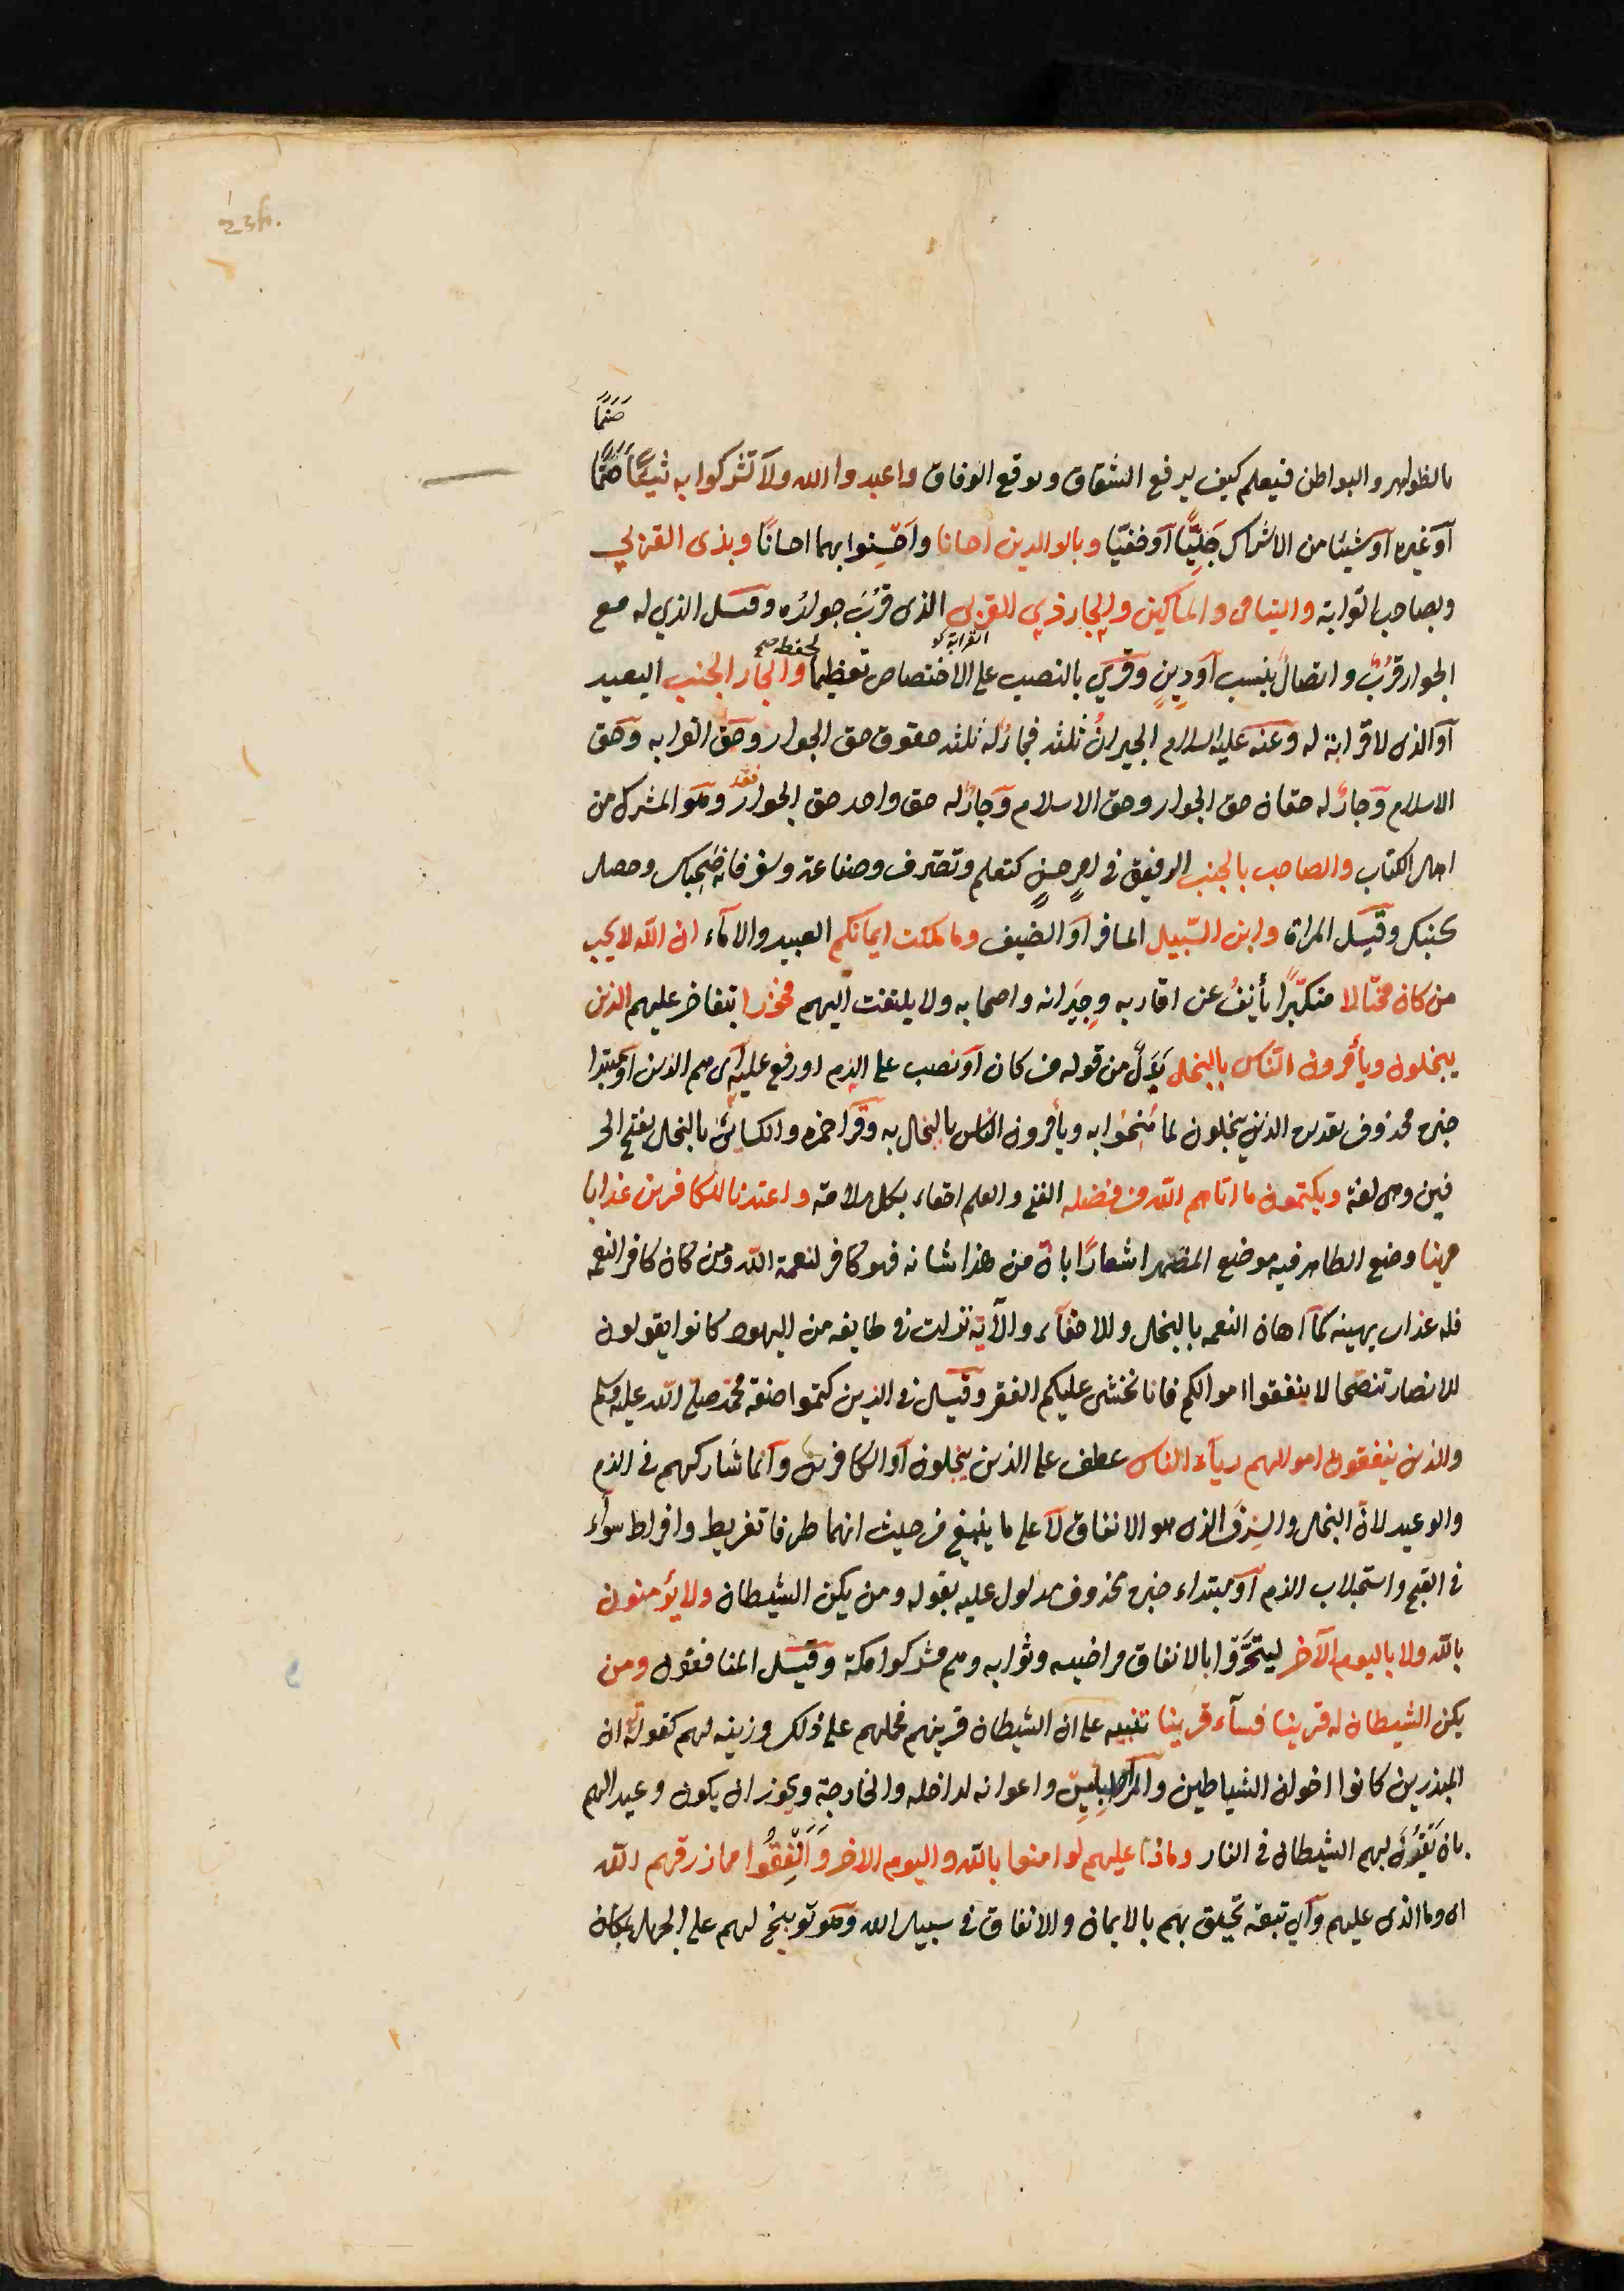 صَنَمًا
بالظواهر والبواطن فيعلم كيف يرفع الشقاق ويوقع الوفاق واعبدوا الله ولا تشركوا به شيئًا صَنَمًا
أو غيره أو شيئا من الاشراك جَلِيًّا أو خفيّا وبالوالدين احسانا وأحْسِنوا بهما احسانًا وبذى القربى
وبصاحب القرابة واليتامى والمساكين والجار ذى القربى الذى قَرُبَ جوارُه وقيل الذي له مع
الجوار قُرْبٌ واتصالٌ بنسب أو دِينٍ وقرئ بالنصب على الاختصاص تعظيما لحقه والجار الجنب البعيد
أو الذى لا قرابة له وعنه عليه السلام الجيرانُ ثلثه فجارٌ له ثلثه حقوق حق الجوار وحق القرابه وحق
الاسلام وجارٌ له حقان حق الجوار وحق الاسلام وجارٌ له حق واحد حق الجوار وهو المشرك من
اهل الكتاب والصاحب بالجنب الرفيق فى امرٍ حسنٍ كتعلم وتصرف وصناعة وسفر فانه صَحِبَك وحصل
بجنبك وقيل المراة وابن السَّبيل المسافر أو الضيف وما ملكت ايمانكم العبيد والاماء ان الله لا يحب
من كان مختالا متكبّرًا يأنفُ عن اقاربه وجِيرانه واصحابه ولا يلتفت اليهم فخورا يتفاخر عليهم الذين
يبخلون ويأمرون النّاس بالبخل بَدَلٌ من قوله من كان أو نصب على الذم او رفع عليه اى هم الذين أو مبتدا
خبره محذوف تقديره الذين يبخلون بما مُنِحُوا به ويأمرون الناس بالبخل به وقرا حمزه والكسائى بالبخل بفتح الحر
فين وهى لغة ويكتمون ما اتاهم الله من فضله الغنى والعلم احقاء بكل ملامة واعتدنا للكافرين عذابا
مهينا وضع الظاهر فيه موضع المضمر اشعارًا بانّ من هذا شانه فهو كافر لنعمة الله ومن كان كافر النعمه
فله عذاب يهينه كما اهان النعمه بالبخل والاخفآء والآية نزلت فى طايفه من اليهود كانوا يقولون
للانصار تنصّحا لا ينفقوا اموالكم فانا نخشى عليكم الفقر وقيل فى الذين كتموا صفة محمّد صلى الله عليه وسلم
والذين ينفقون اموالهم ريآء الناس عطف على الذين يبخلون أو الكافرين وانما شاركهم فى الذم
والوعيد لانّ البخل والسرف الذى هو الانفاق لا على ما ينبغى من حيث انهما طرفا تفريط وافراط سوآء
فى القبح واستجلاب الذم أو مبتداء خبره محذوف مدلول عليه بقوله ومن يكن الشيطان ولا يؤمنون
بالله ولا باليوم الآخر ليتحَرَّوا بالانفاق مراضيه وثوابه وهم مشركوا مكة وقيل المنافقون ومن
يكن الشيطان له قرينا فسآء قرينا تنبيه على ان الشيطان قرينهم فحملهم على ذلك وزينه لهم كقوله ان
المبذرين كانوا اخوان الشياطين والمراد ابليس واعوانه الداخله والخارجة ويجوز ان يكون وعيدا لهم
بان يُقْرَنَ بهم الشيطان فى النار وماذا عليهم لو امنوا بالله واليوم الاخر وَأنْفِقُوا مما رزقهم الله
اى وما الذى عليهم وأي تبعة تحيق بهم بالايمان والانفاق فى سبيل الله وهو توبيخ لهم على الجهل بمكان